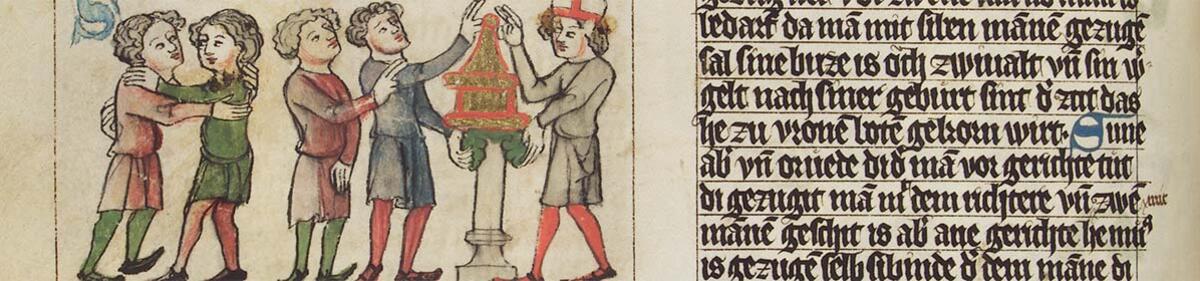 bedarf da mā mit sibē mānē gezugē
sal sine buze is och zwiualt vn̄ sin w-
gelt nach siner geburt sint d' zit das
he zu vronē botē gekorn wirt· Sune
ab' vn̄ oruete di d' mā vor gerichte tut
di gezugit mā m' dem richtere vn̄ zwē
mānē geschit is ab' ane gerichte he mus
is gezugē selb sibinde d' dem māne di